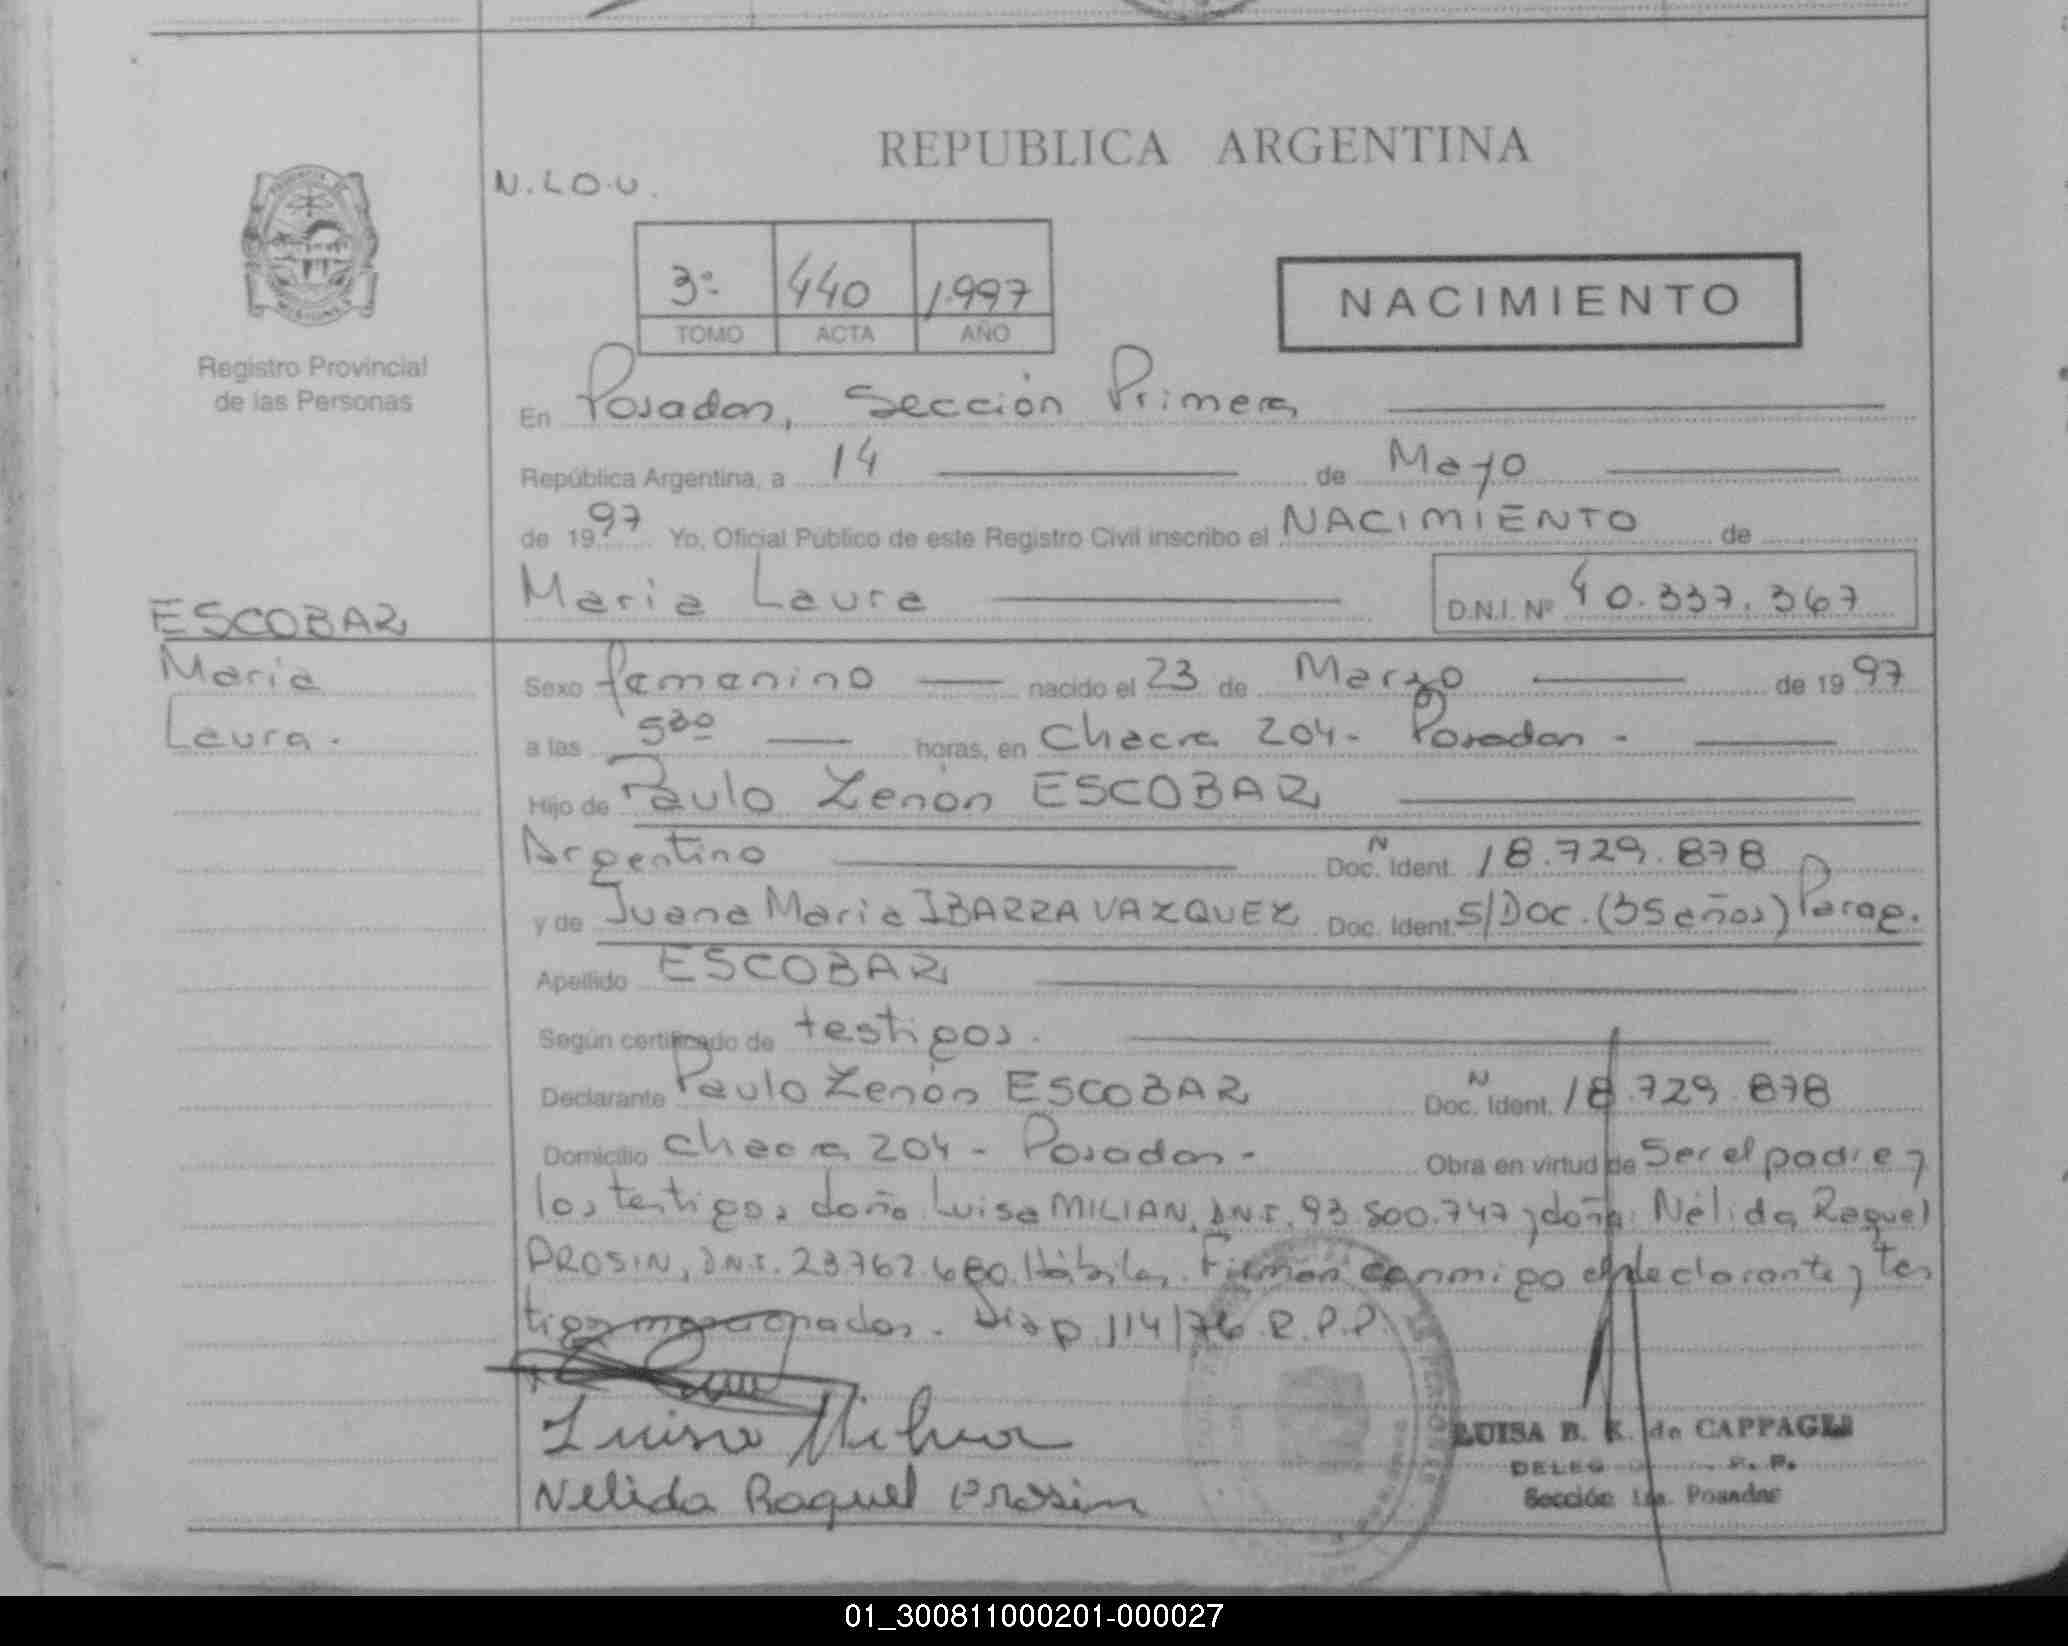 REPUBLICA ARGENTINA
N.L.O.U.
3º 440 1.997
TOMO ACTA AÑO
NACIMIENTO
Registro Provincial
de las Personas
En Posadas, Sección Primera
República Argentina, a 14 de Mayo
de 1997 Yo, Oficial Público de este Registro Civil inscribo el NACIMIENTO de
Maria Laura D.N.I. Nº 40.337.367
ESCOBAR
Maria
Laura.
Sexo femenino nacido el 23 de Marzo de 1997
a las 5 30 horas, en Chacra 204- Posadas -
Hijo de Paulo Zenón ESCOBAR
Argentino Doc. Ident. N 18.729.878
y de Juana Maria IBARRA VAZQUEZ Doc. Ident. S/Doc. (35 años) Parag.
Apellido ESCOBAR
Según certificado de testigos.
Declarante Paulo Zenón ESCOBAR Doc. Ident. N 18.729.878
Domicilio Chacra 204 - Posadas - Obra en virtud de Ser el padre y
los testigos doña Luisa MILIAN, D.N.I. 93.500.747 y doña Nélida Raquel
PROSIN, D.N.I. 23.762.680. Hábiles. Firman conmigo el declarante y tes
tigos mencionados. Disp. 114/76 R.P.P.
Luisa Milian
Nelida Raquel Prosin
LUISA B. K. de CAPPAGLI
Sección 1ra. Posadas
01_300811000201-000027